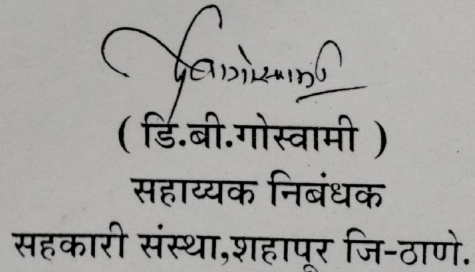 ( डि.बी.गोस्वामी )
सहाय्यक निबंधक
सहकारी संस्था,शहापूर जि-ठाणे.